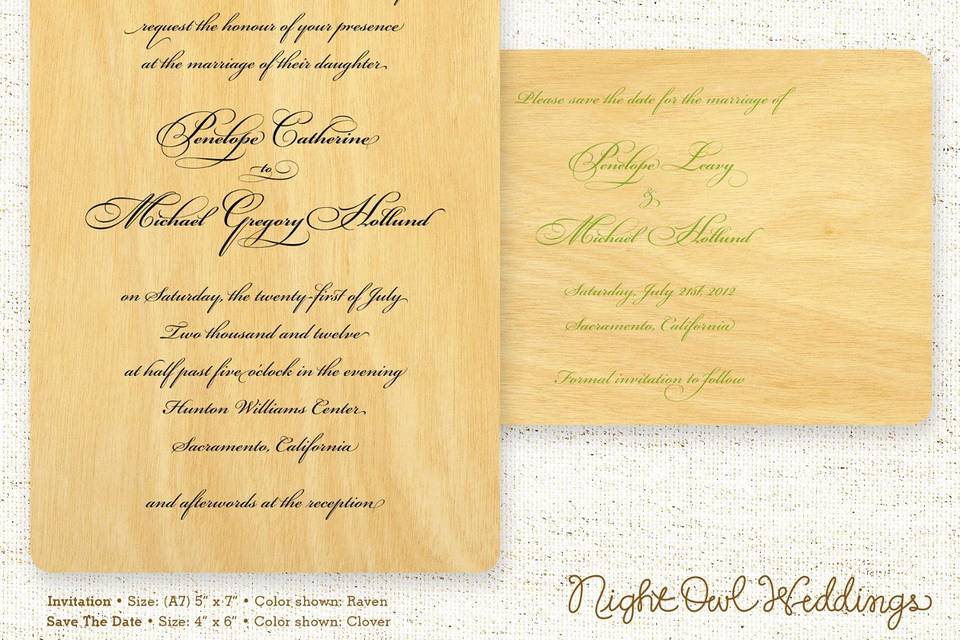 request the honour of your presence
at the marriage of their daughter
Penelope Catherine
to
Michael Gregory Hollund
on Saturday, the twenty-first of July
Two thousand and twelve
at half past five o'clock in the evening
Hunton Williams Center
Sacramento, California
and afterwords at the reception
Please save the date for the marriage of
Penelope Leavy
&
Michael Hollund
Saturday, July 21st, 2012
Sacramento, California
Formal invitation to follow
Invitation • Size: (A7) 5" x 7" • Color shown: Raven
Save The Date • Size: 4" x 6" • Color shown: Clover
Night Owl Weddings